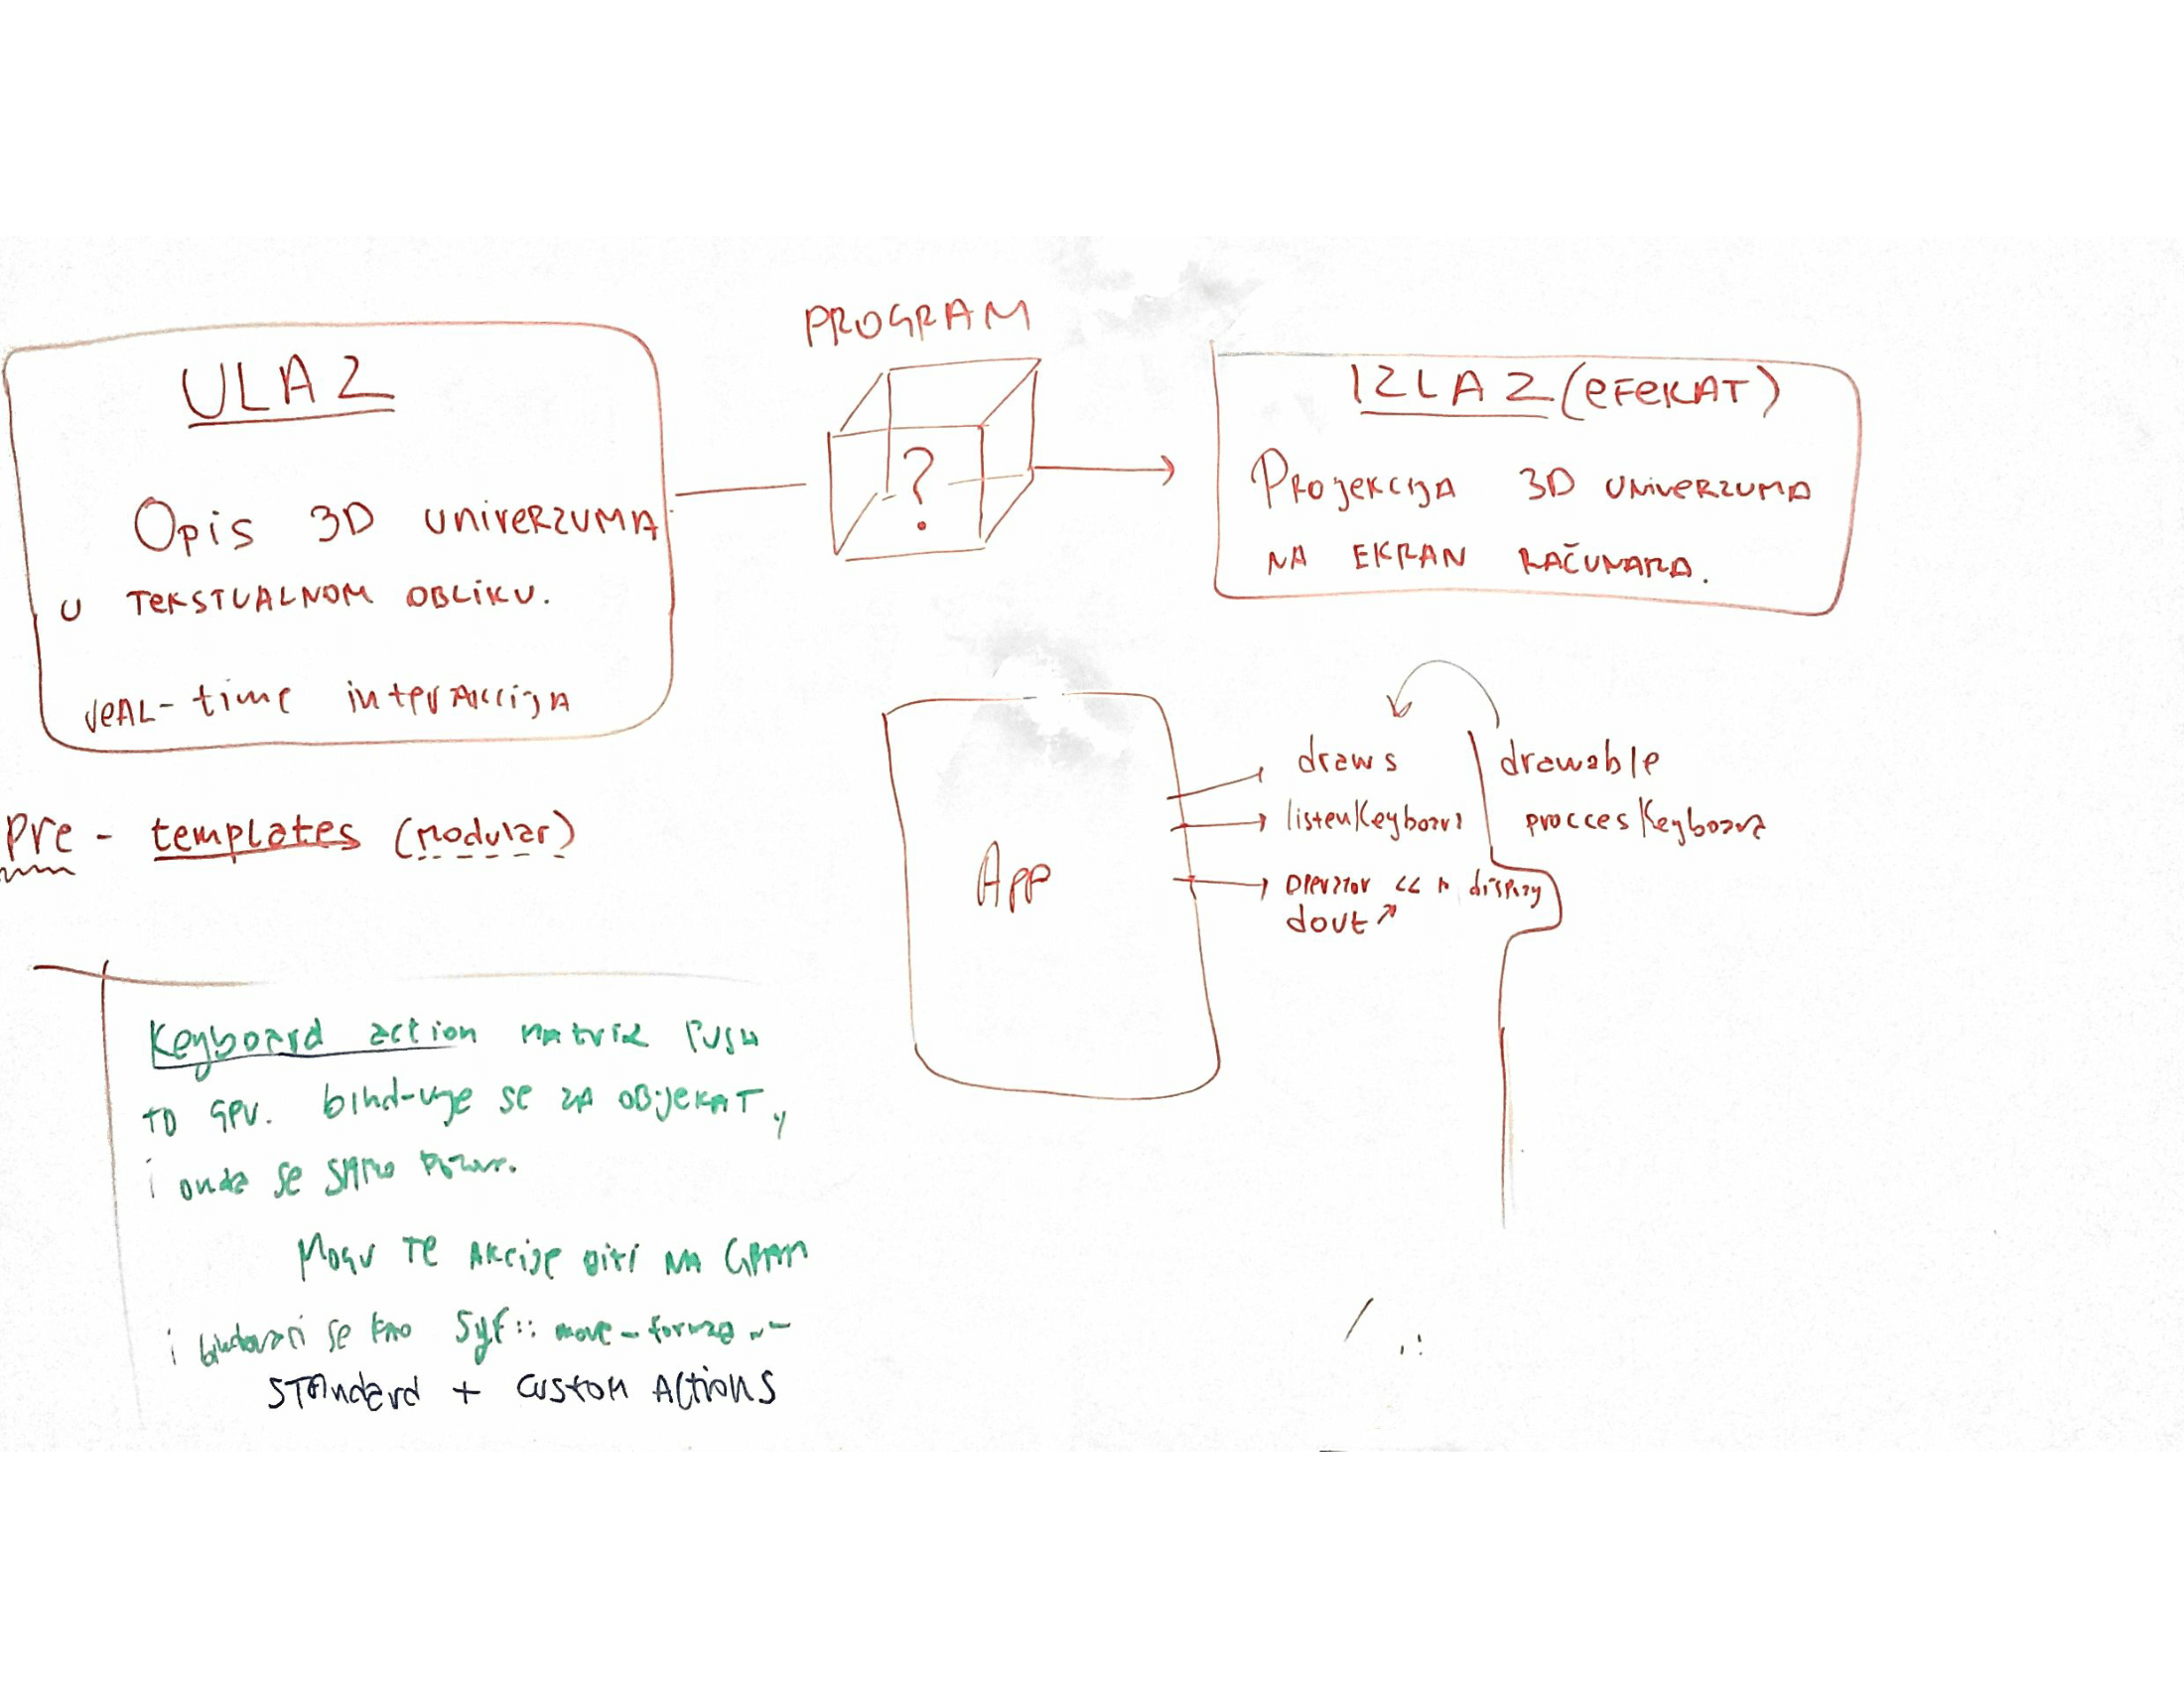 ULAZ
Opis 3D UNIVERZUMA
U TEKSTUALNOM OBLIKU.
reAL-time interAkcijA
PROGRAM
?
IZLAZ (EFEKAT)
PROJEKCIJA 3D UNIVERZUMA
NA EKRAN RAČUNARA.
pre - templates (modular)
App
draws
listenKeyboard
operator << display
dout
drawable
proccesKeyboard
Keyboard action matrix push
to GPU. bind-uje se za OBJEKAT,
i onda se samo
Mogu te akcije biti na GRAM
i bindovati se kao Syf::move-forwa
STandard + custom Actions